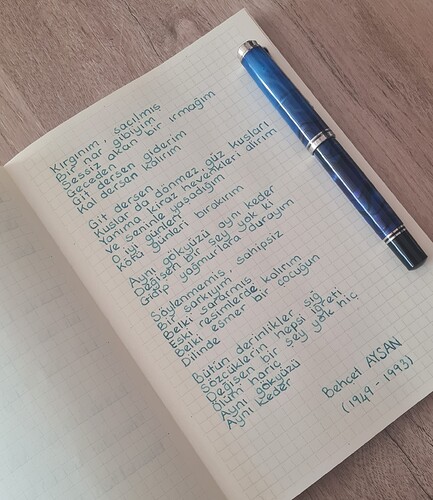 Kırgınım, saçılmış
Bir nar gibiyim
Sessiz akan bir ırmağım
Geceden
Git dersen giderim
Kal dersen kalırım
Git dersen
Kuşlar da dönmez güz kuşları
Yanıma kiraz hevenkleri alırım
Ve seninle yaşadığım
O iyi günleri
Kötü günleri bırakırım
Aynı gökyüzü aynı keder
Değişen bir şey yok ki
Gidip yağmurlara durayım
Söylenmemiş, sahipsiz
Bir şarkıyım
Belki sararmış
Eski resimlerde kalırım
Belki esmer bir çocuğun
Dilinde
Bütün derinlikler sığ
Sözcüklerin hepsi iğreti
Değişen bir şey yok hiç
Ölüm hariç
Aynı gökyüzü
Aynı keder
Behçet AYSAN
(1949-1993)